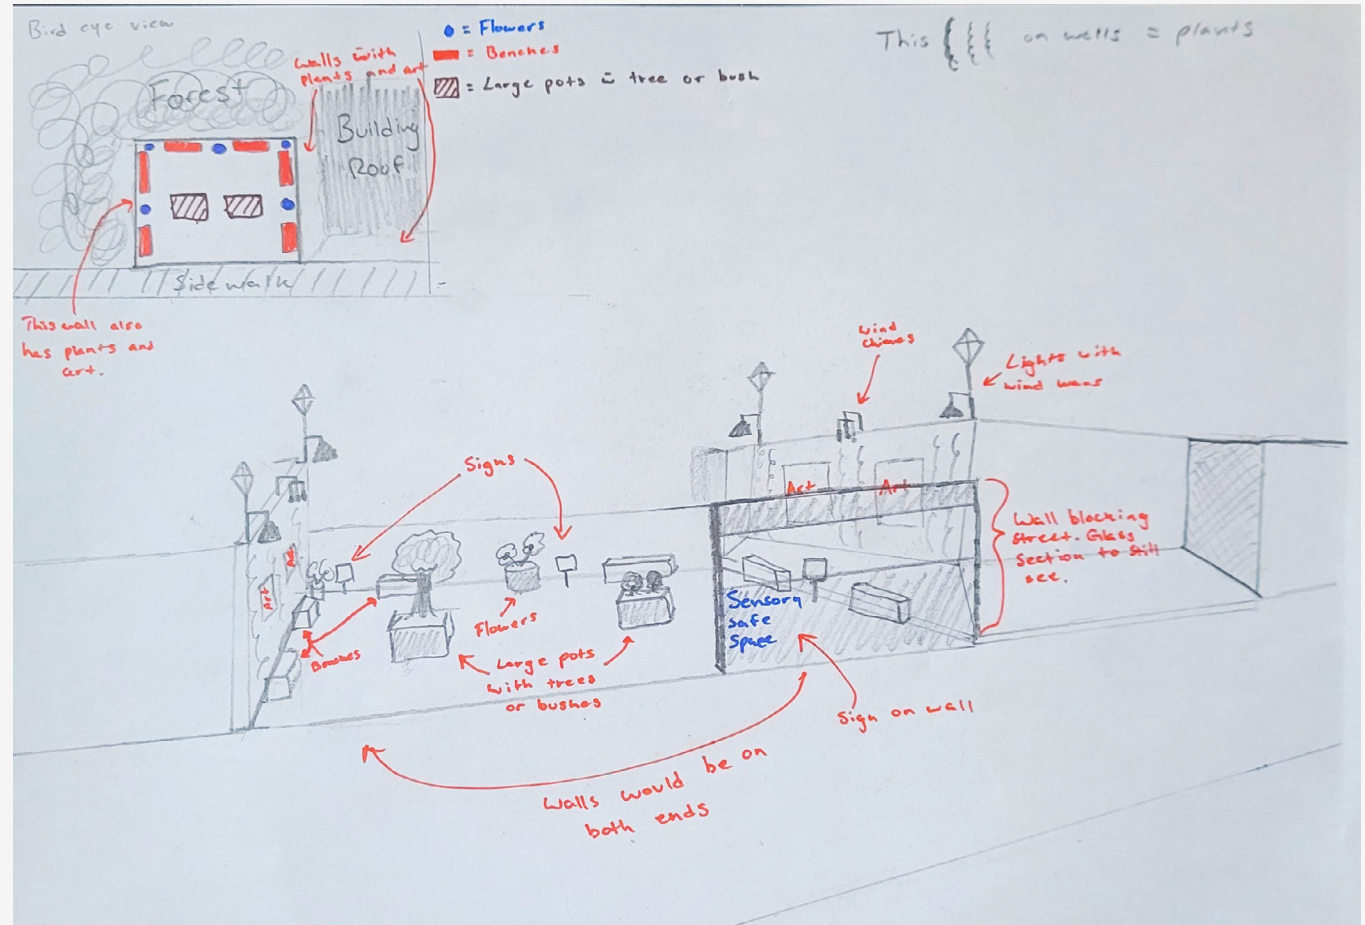 Bird eye view
= Flowers
= Benches
= Large pots c̄ tree or bush
This {{{ on walls = plants
walls with
plants and art
Forest
Building
Roof
Sidewalk
This wall also
has plants and
art.
wind
chimes
Lights with
wind
Signs
Art
Art
Art
Wall blocking
street. Glass
section to still
see.
Sensory
safe
space
Benches
Flowers
Large pots
with trees
or bushes
Sign on wall
Walls would be on
both ends